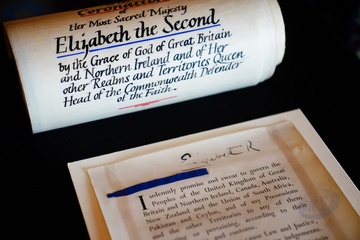 Coronation
Her Most Sacred Majesty
Elizabeth the Second
by the Grace of God of Great Britain
and Northern Ireland and of Her
other Realms and Territories Queen
Head of the Commonwealth Defender
of the Faith.
Elizabeth R
I solemnly promise and swear to govern the
Peoples of the United Kingdom of Great
Britain and Northern Ireland, Canada, Australia,
New Zealand and the Union of South Africa,
Pakistan and Ceylon, and of my Possessions
and the other Territories to any of them
or pertaining, according to their
and customs.
Law and Justice,